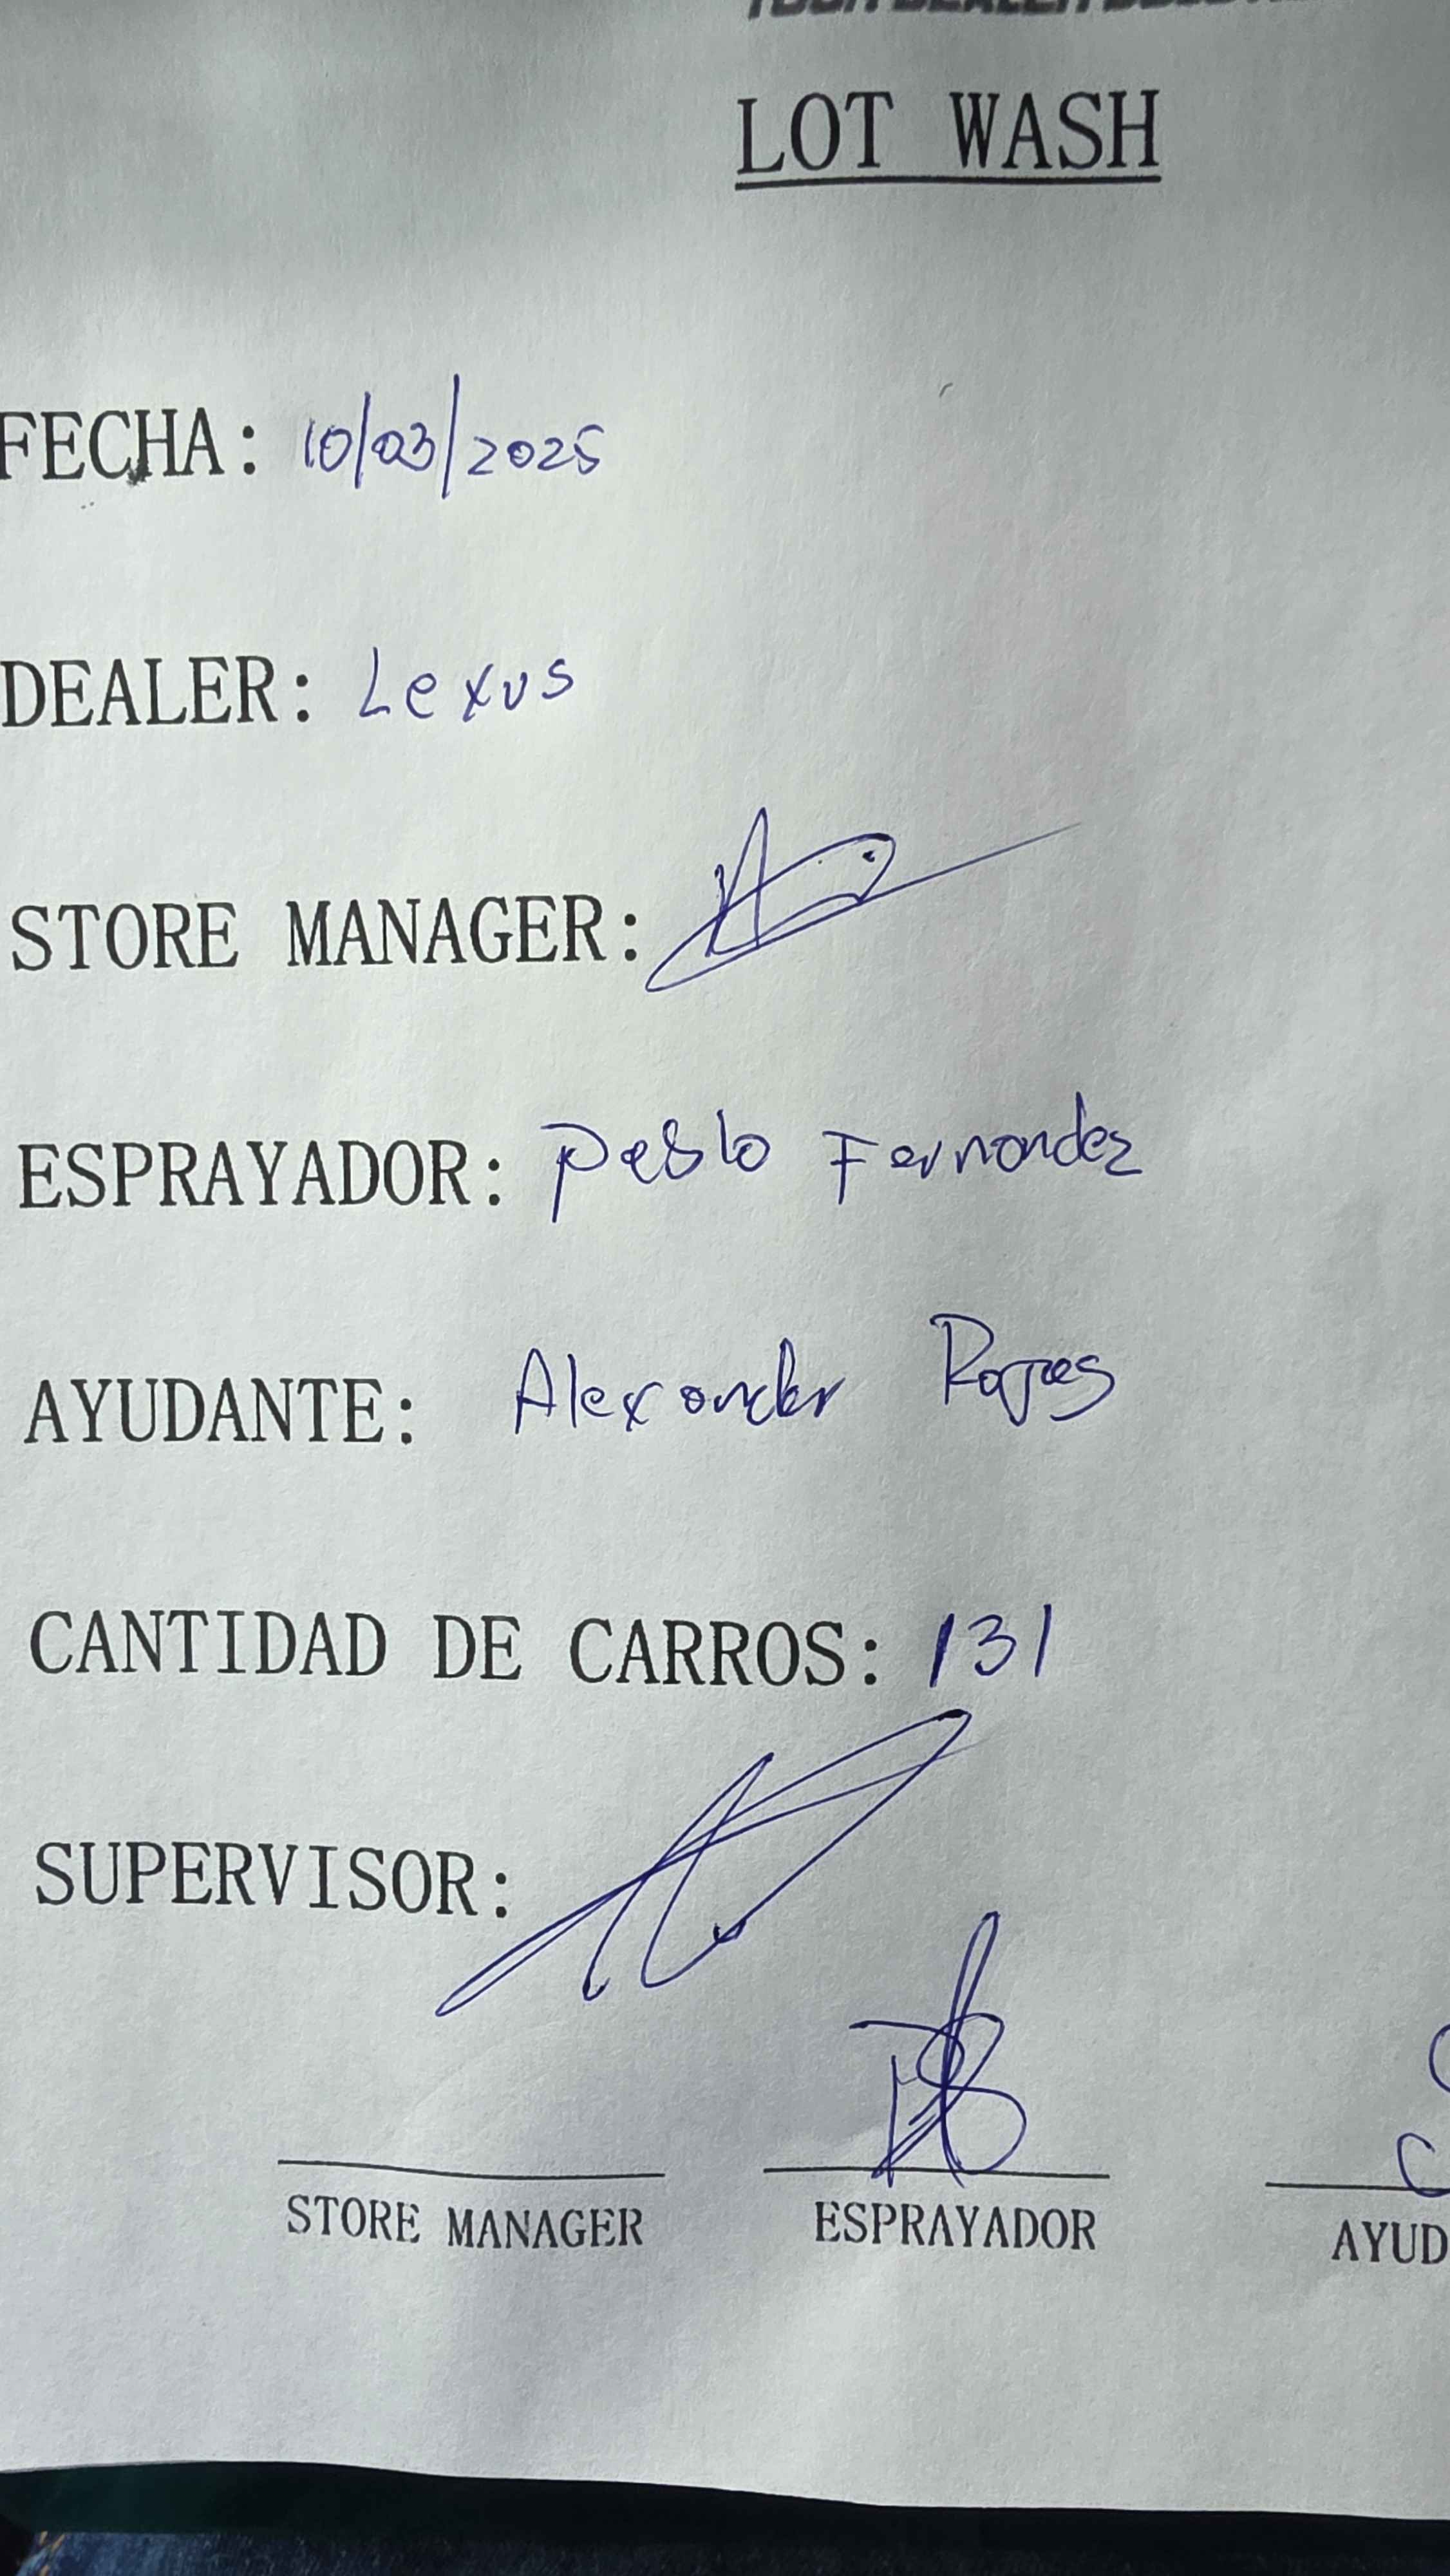 LOT WASH
FECHA: 10/03/2025
DEALER: Lexus
STORE MANAGER:
ESPRAYADOR: Pablo Fernandez
AYUDANTE: Alexander Rojas
CANTIDAD DE CARROS: 131
SUPERVISOR:
STORE MANAGER ESPRAYADOR AYUD